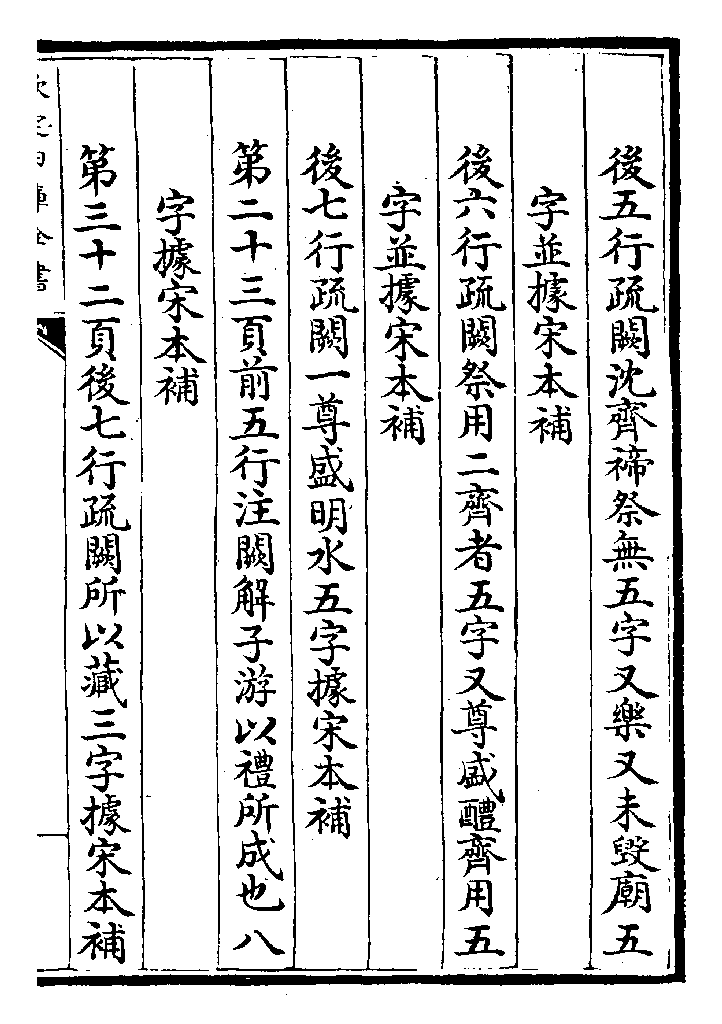 後五行疏闕沈齊禘祭無五字又樂又未毀廟五
字並據宋本補
後六行疏闕祭用二齊者五字又尊盛醴齊用五
字並據宋本補
後七行疏闕一尊盛明水五字據宋本補
第二十三頁前五行注闕解子游以禮所成也八
字據宋本補
第三十二頁後七行疏闕所以藏三字據宋本補
欽定四庫全書